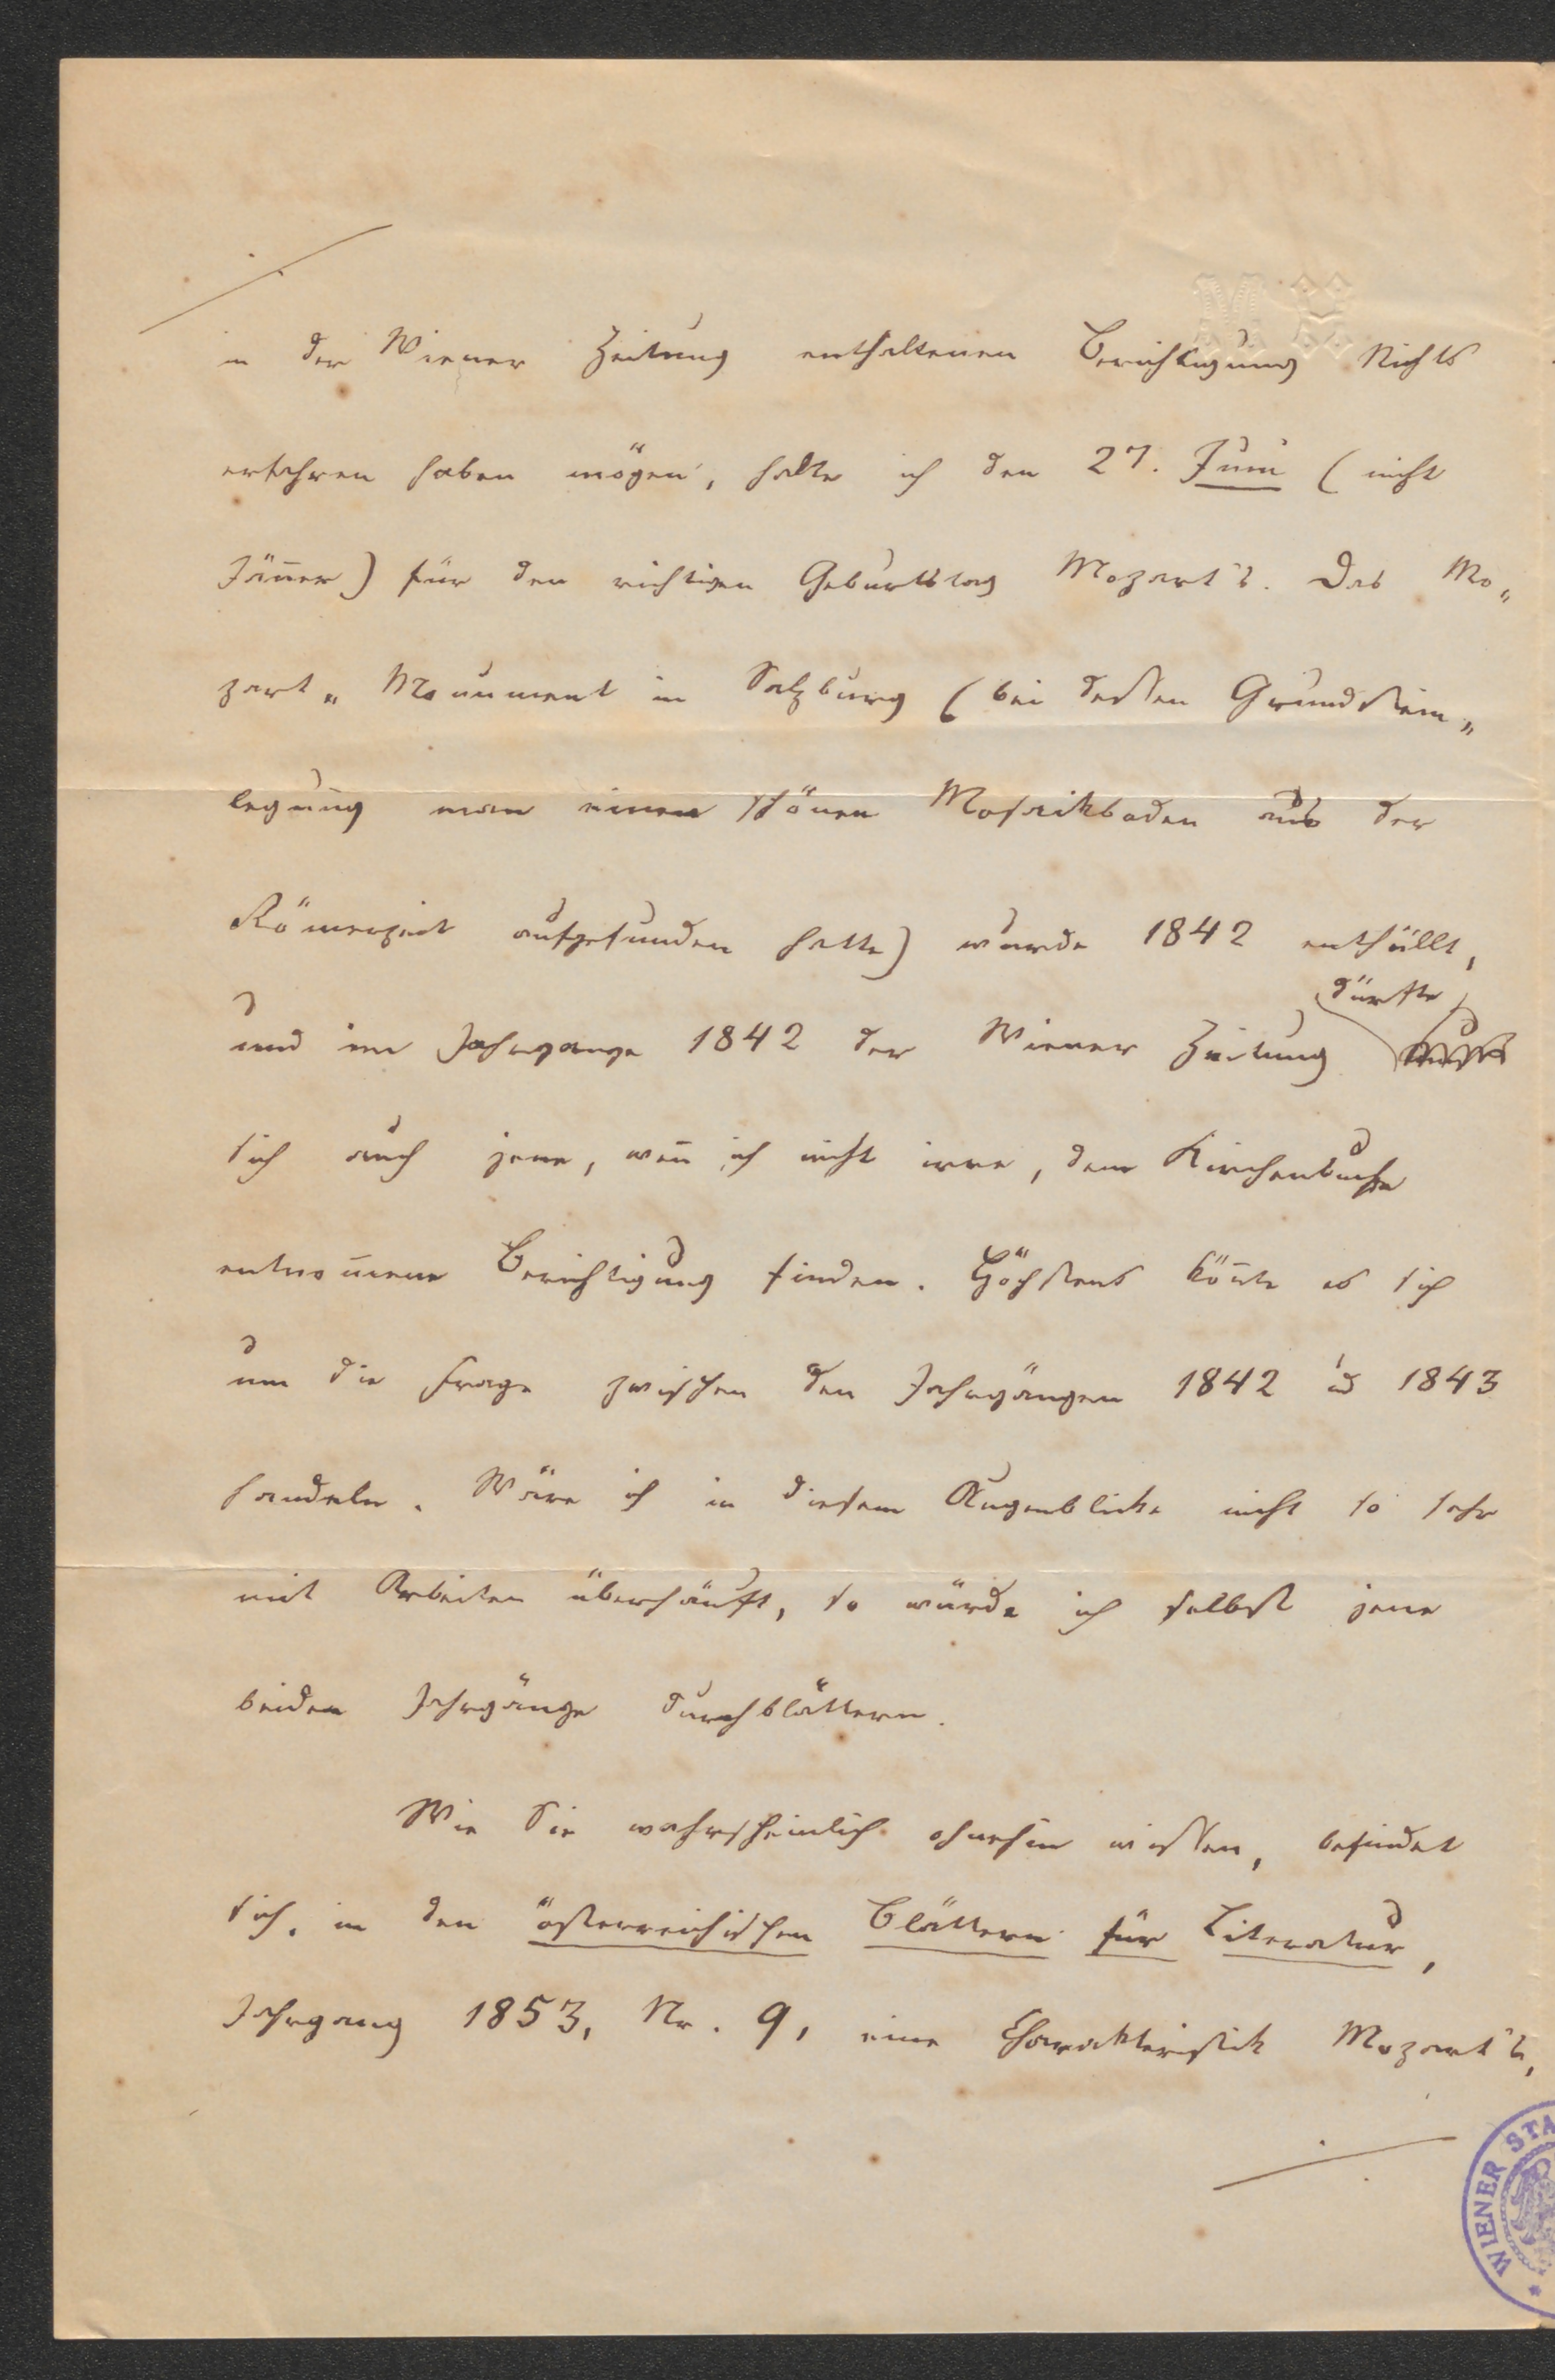 in der Wiener Zeitung enthaltenen Berichtigung Nichts
erfahren haben mögen, halte ich den 27. Juni (nicht
Jän̄er) für den richtigen Geburtstag Mozart's. Das Mo„
zart„Monument in Salzburg (bei dessen Grundstein„
legung man einen schönen Mosaikboden aus der
Römerzeit aufgefunden hatte) wurde 1842 enthüllt,
dürfte
und im Jahrgange 1842 der Wiener Zeitung
sich auch jene, wen̄ ich nicht irre, dem Kirchenbuche
entnom̄ene Berichtigung finden. Höchstens kön̄te es sich
um die Frage zwischen den Jahrgängen 1842 u 1843
handeln. Wäre ich in diesem Augenblicke nicht so sehr
mit Arbeiten überhäuft, so würde ich selbst jene
beiden Jahrgänge durchblättern.
Wie Sie wahrscheinlich ohnehin wissen, befindet
sich, in den österreichischen Blättern für Literatur,
Jahrgang 1853, Nr. 9, eine Charakteristik Mozart's,
WIENER STA